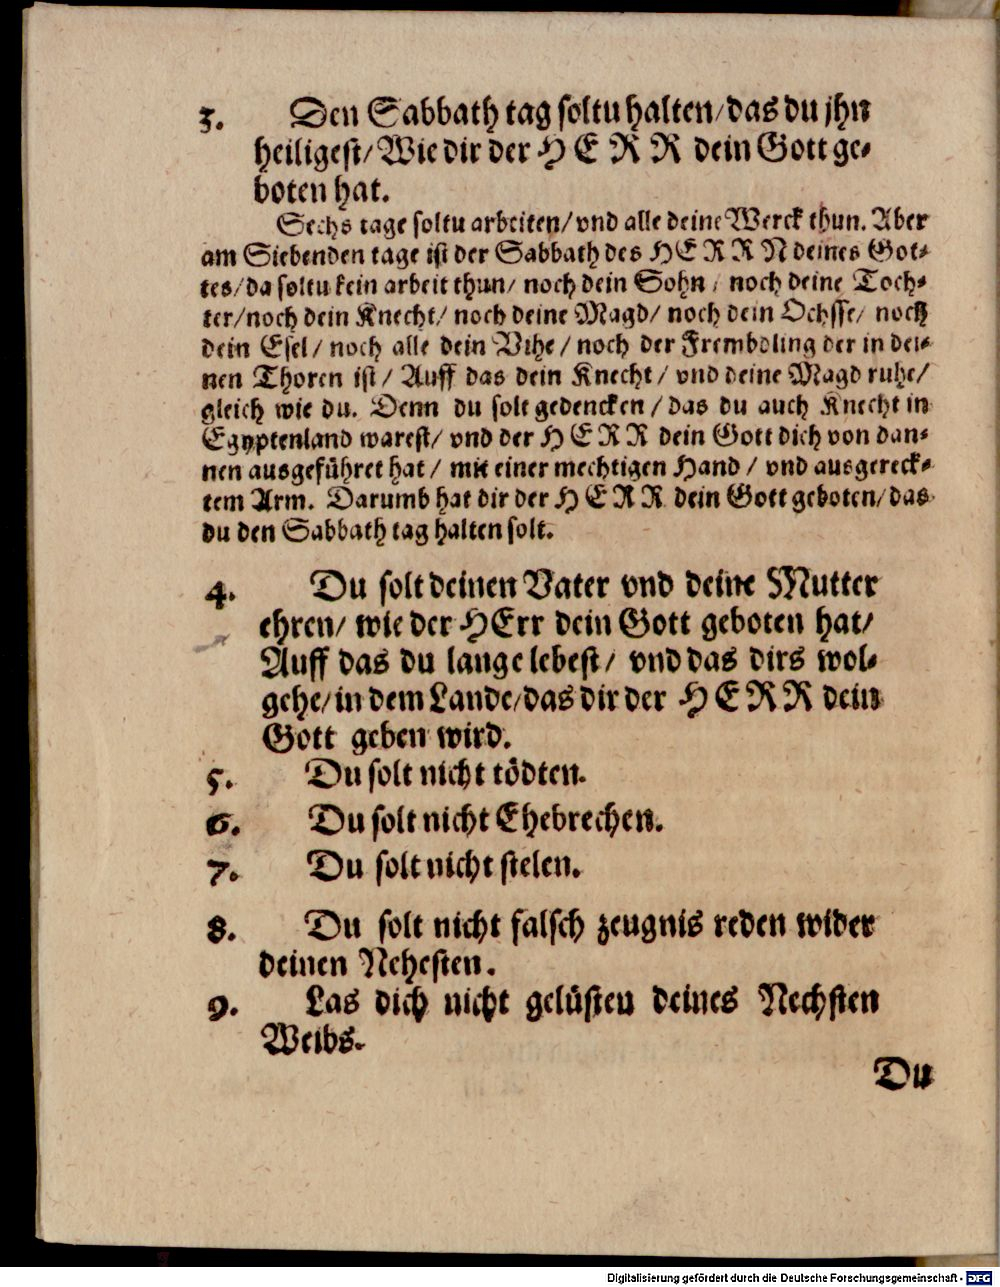 3. Den Sabbath tag soltu halten/das du jhn
heiligest/Wie dir der HERR dein Gott ge-
boten hat.
Sechs tage soltu arbeiten/vnd alle deine Werck thun. Aber
am Siebenden tage ist der Sabbath des HERRN deines Got-
tes/da soltu kein arbeit thun/ noch dein Sohn/ noch deine Toch-
ter/noch dein Knecht/ noch deine Magd/ noch dein Ochsse/ noch
dein Esel/ noch alle dein Vihe/ noch der Frembdling der in dei-
nen Thoren ist/ Auff das dein Knecht/ vnd deine Magd ruhe/
gleich wie du. Denn du solt gedencken/das du auch Knecht in
Egyptenland warest/ vnd der HERR dein Gott dich von dan-
nen ausgeführet hat/ mit einer mechtigen Hand/ vnd ausgereck-
tem Arm. Darumb hat dir der HERR dein Gott geboten/das
du den Sabbath tag halten solt.
4. Du solt deinen Vater vnd deine Mutter
ehren/ wie der HErr dein Gott geboten hat/
Auff das du lange lebest/ vnd das dirs wol-
gehe/in dem Lande/das dir der HERR dein
Gott geben wird.
5. Du solt nicht tödten.
6. Du solt nicht Ehebrechen.
7. Du solt nicht stelen.
8. Du solt nicht falsch zeugnis reden wider
deinen Nehesten.
9. Las dich nicht gelüsten deines Nechsten
Weibs.
Du
Digitalisierung gefördert durch die Deutsche Forschungsgemeinschaft - DFG